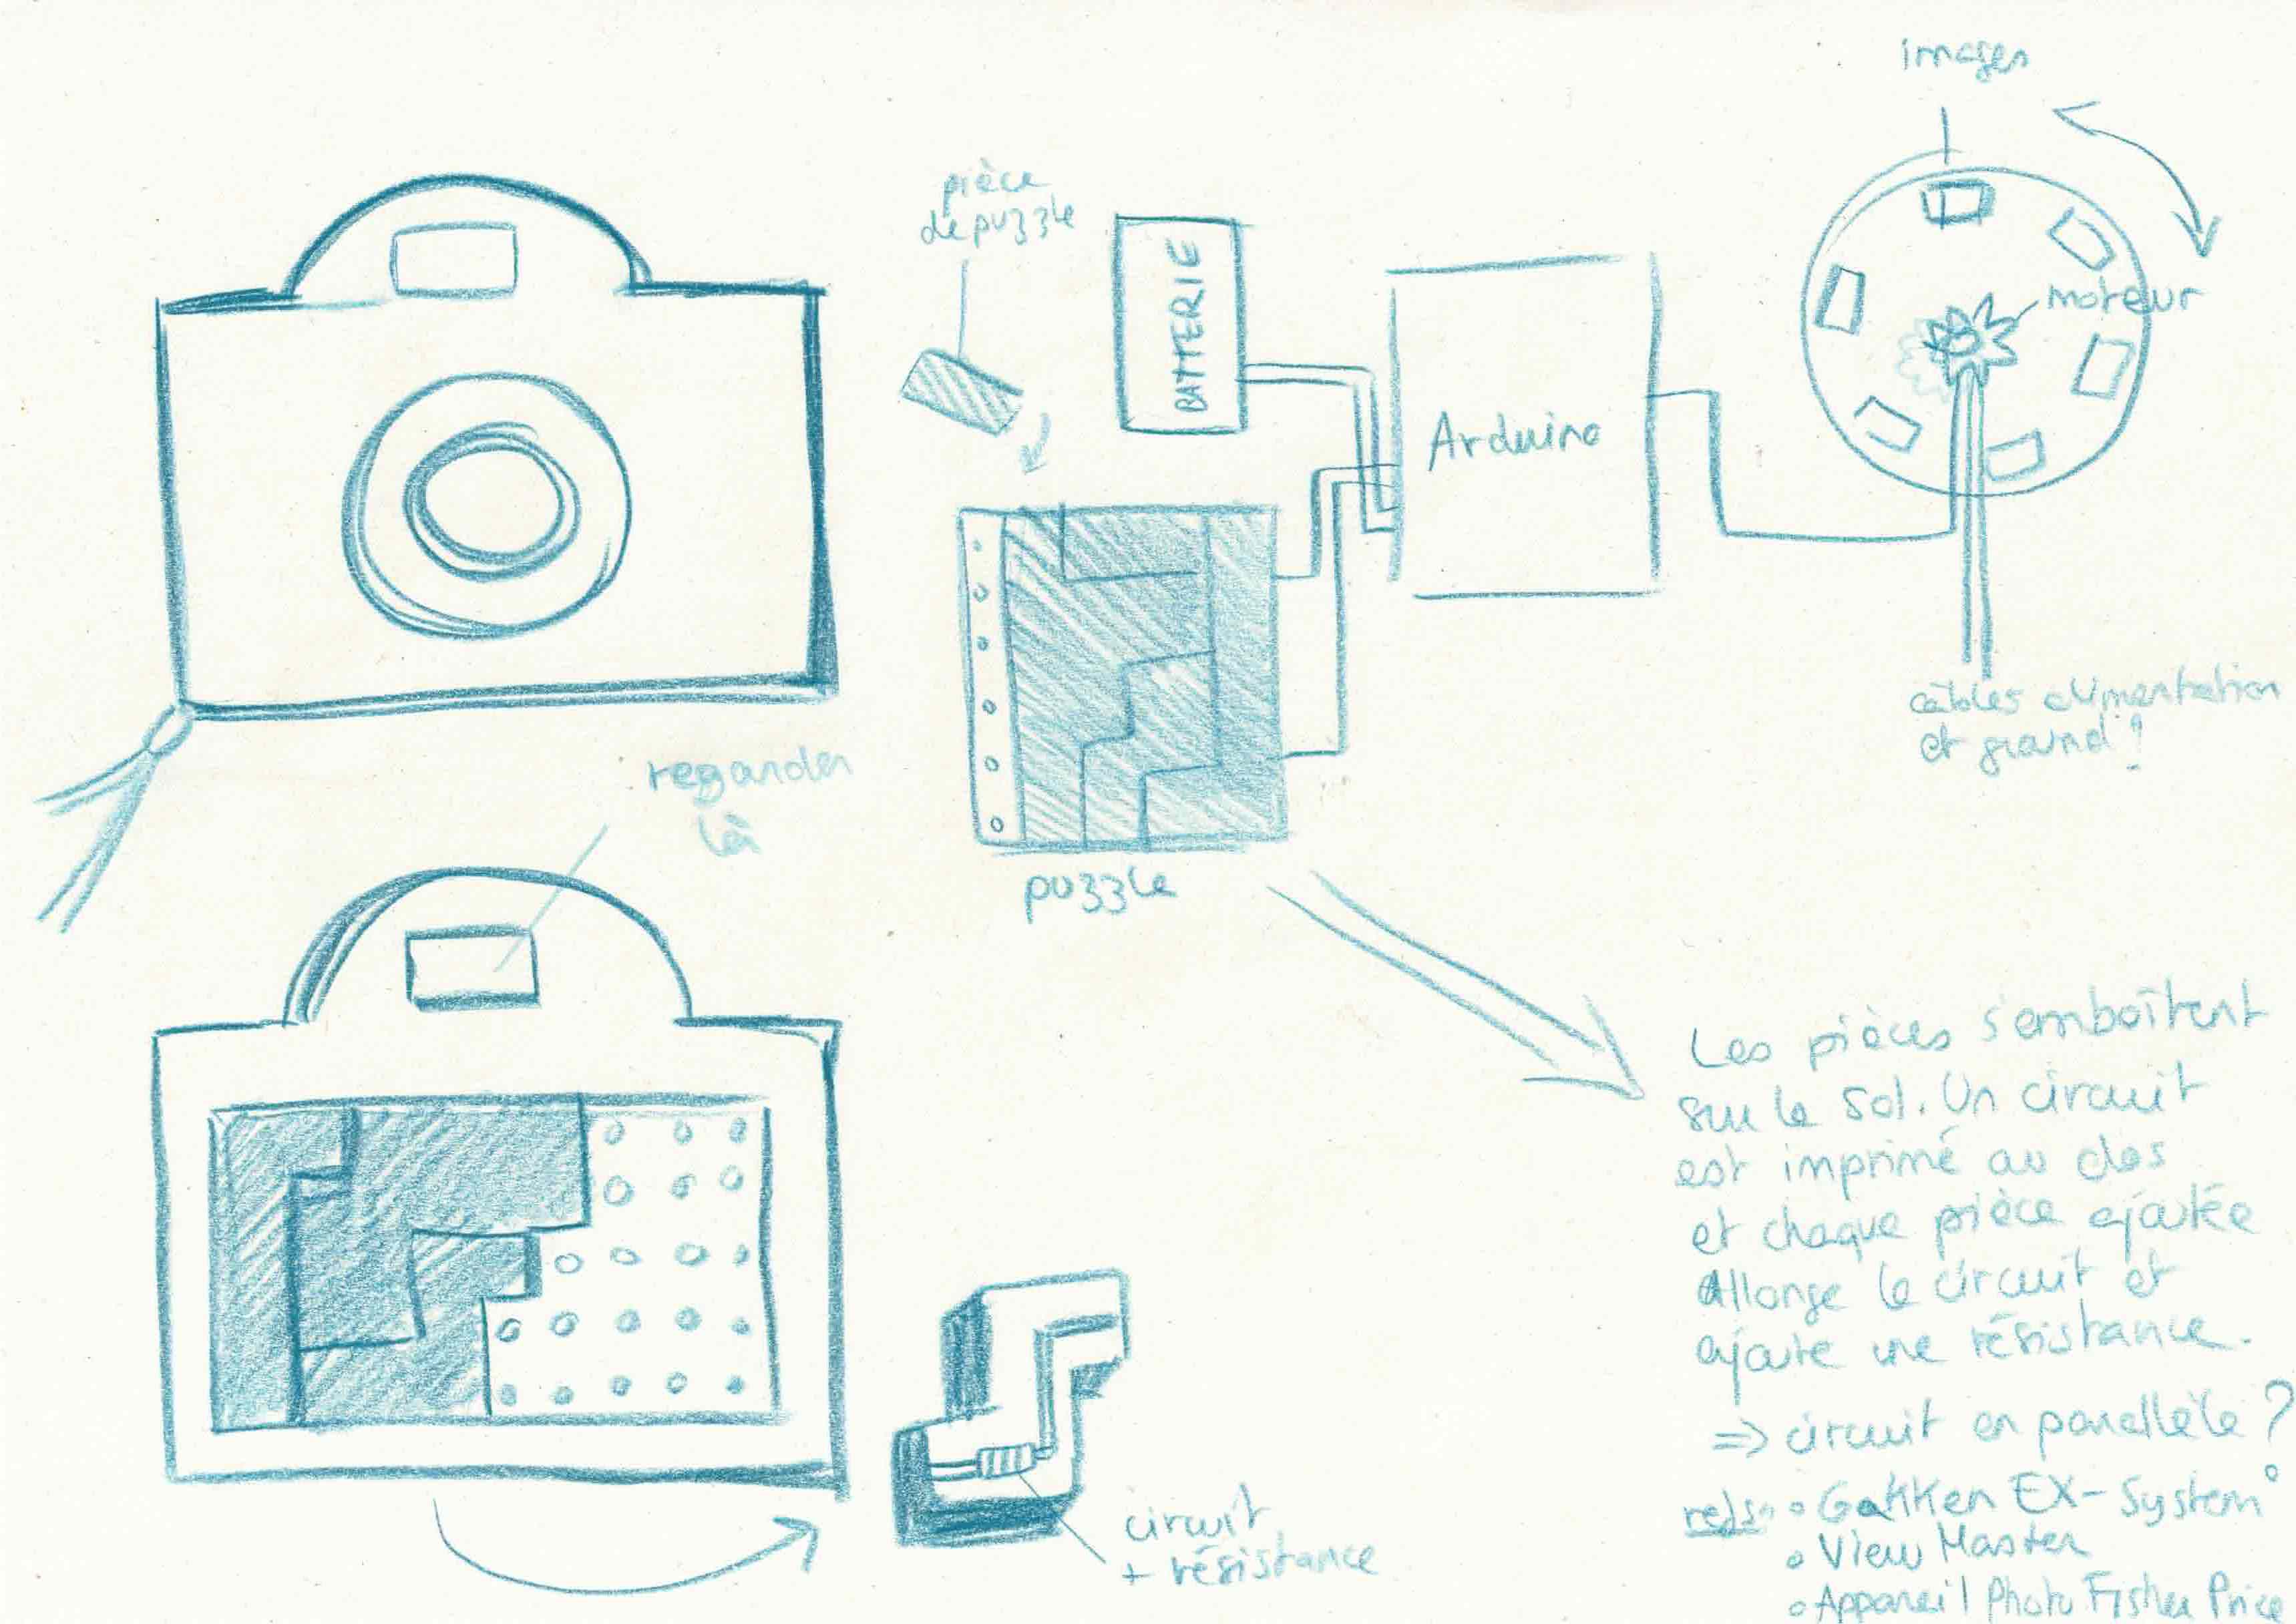 images
pièce
de puzzle
BATTERIE
moteur
Arduino
câbles alimentation
et ground?
regarder
là
puzzle
Les pièces s'emboîtent
sur le sol. Un circuit
est imprimé au dos
et chaque pièce ajoutée
allonge le circuit et
ajoute une résistance.
=> circuit en parallèle?
refs: o Gakken EX-System
o View Master
o Appareil Photo Fisher Price
circuit
+ résistance